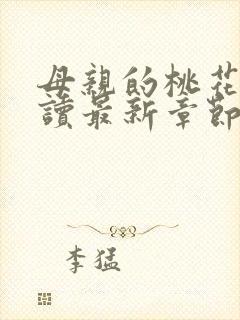 母親的桃花
讀最新章節
李猛